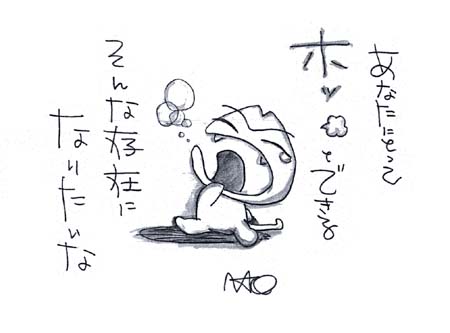 あなたにとって
ホッとできる
そんな存在に
なりたいな